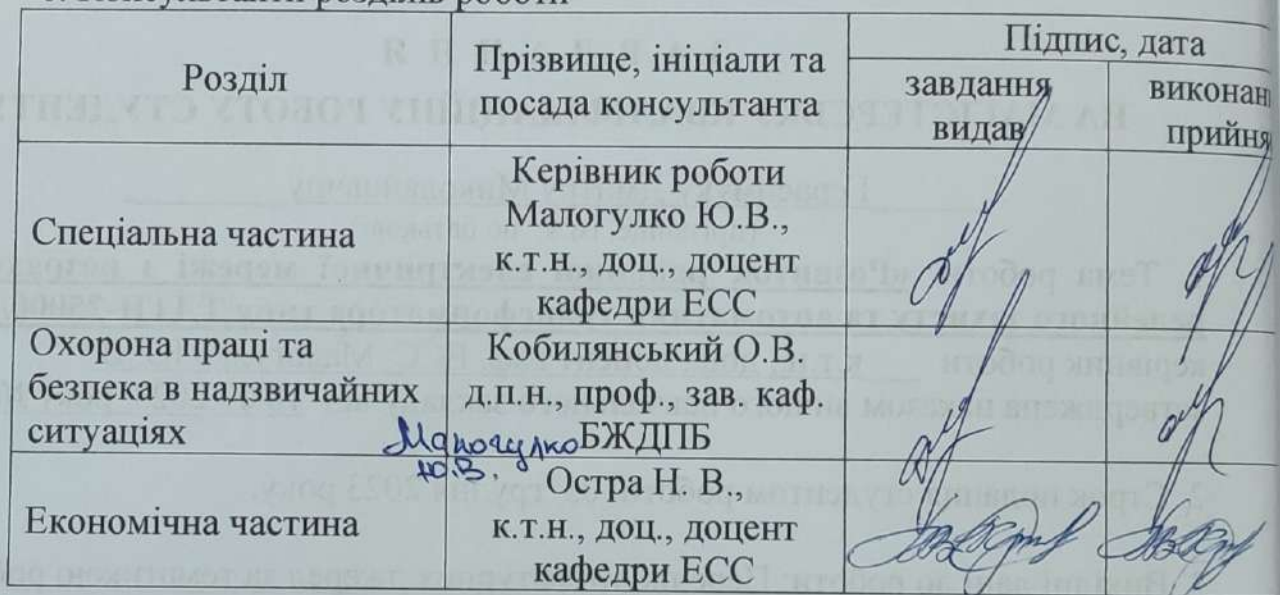 Розділ
Прізвище, ініціали та
посада консультанта
Підпис, дата
завдання
видав
виконан
прийня
Спеціальна частина
Керівник роботи
Малогулко Ю.В.,
к.т.н., доц., доцент
кафедри ЕСС
Охорона праці та
безпека в надзвичайних
ситуаціях
Кобилянський О.В.
д.п.н., проф. зав. каф.
БЖДПБ
Малогулко
Ю.В.
Економічна частина
Остра Н.В.,
к.т.н., доц., доцент
кафедри ЕСС